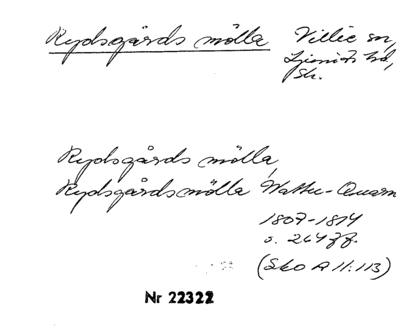 Rydsgårds mölla Villie sn,
Ljunits hd,
Sk.
Rydsgårds mölla,
Rydsgårdsmölla Wattu-Quarn
1807-1814
s. 264 ff.
(Sko A II:113)
Nr 22322